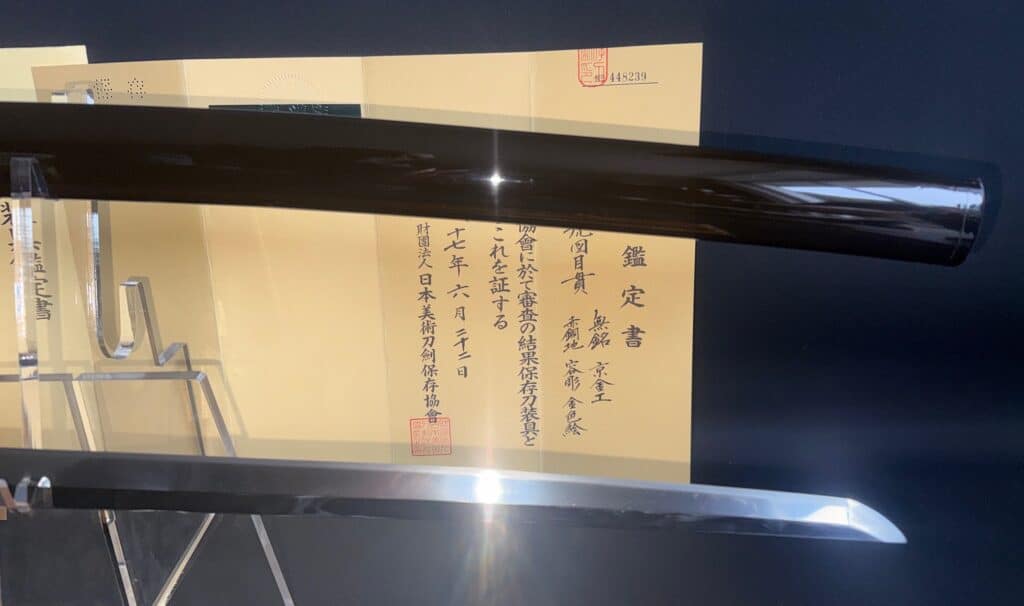 448239
鑑定書
無銘 京金工
赤銅地 容彫 金色絵
図目貫
協會に於て審査の結果保存刀装具と
これを証する
十七年六月二十二日
財團法人日本美術刀劍保存協會
鑑定書